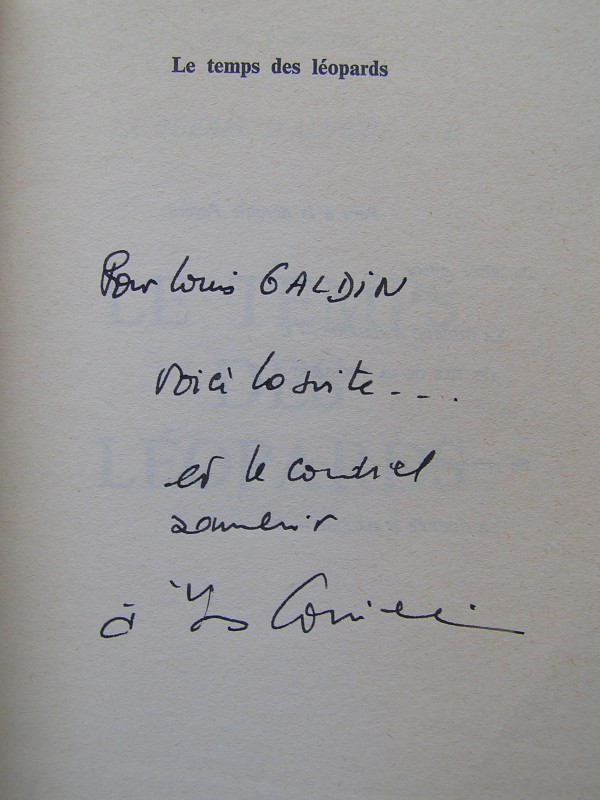 Le temps des léopards
Pour Louis GALDIN
voici la suite....
et le cordial
souvenir
à Yves Courrière